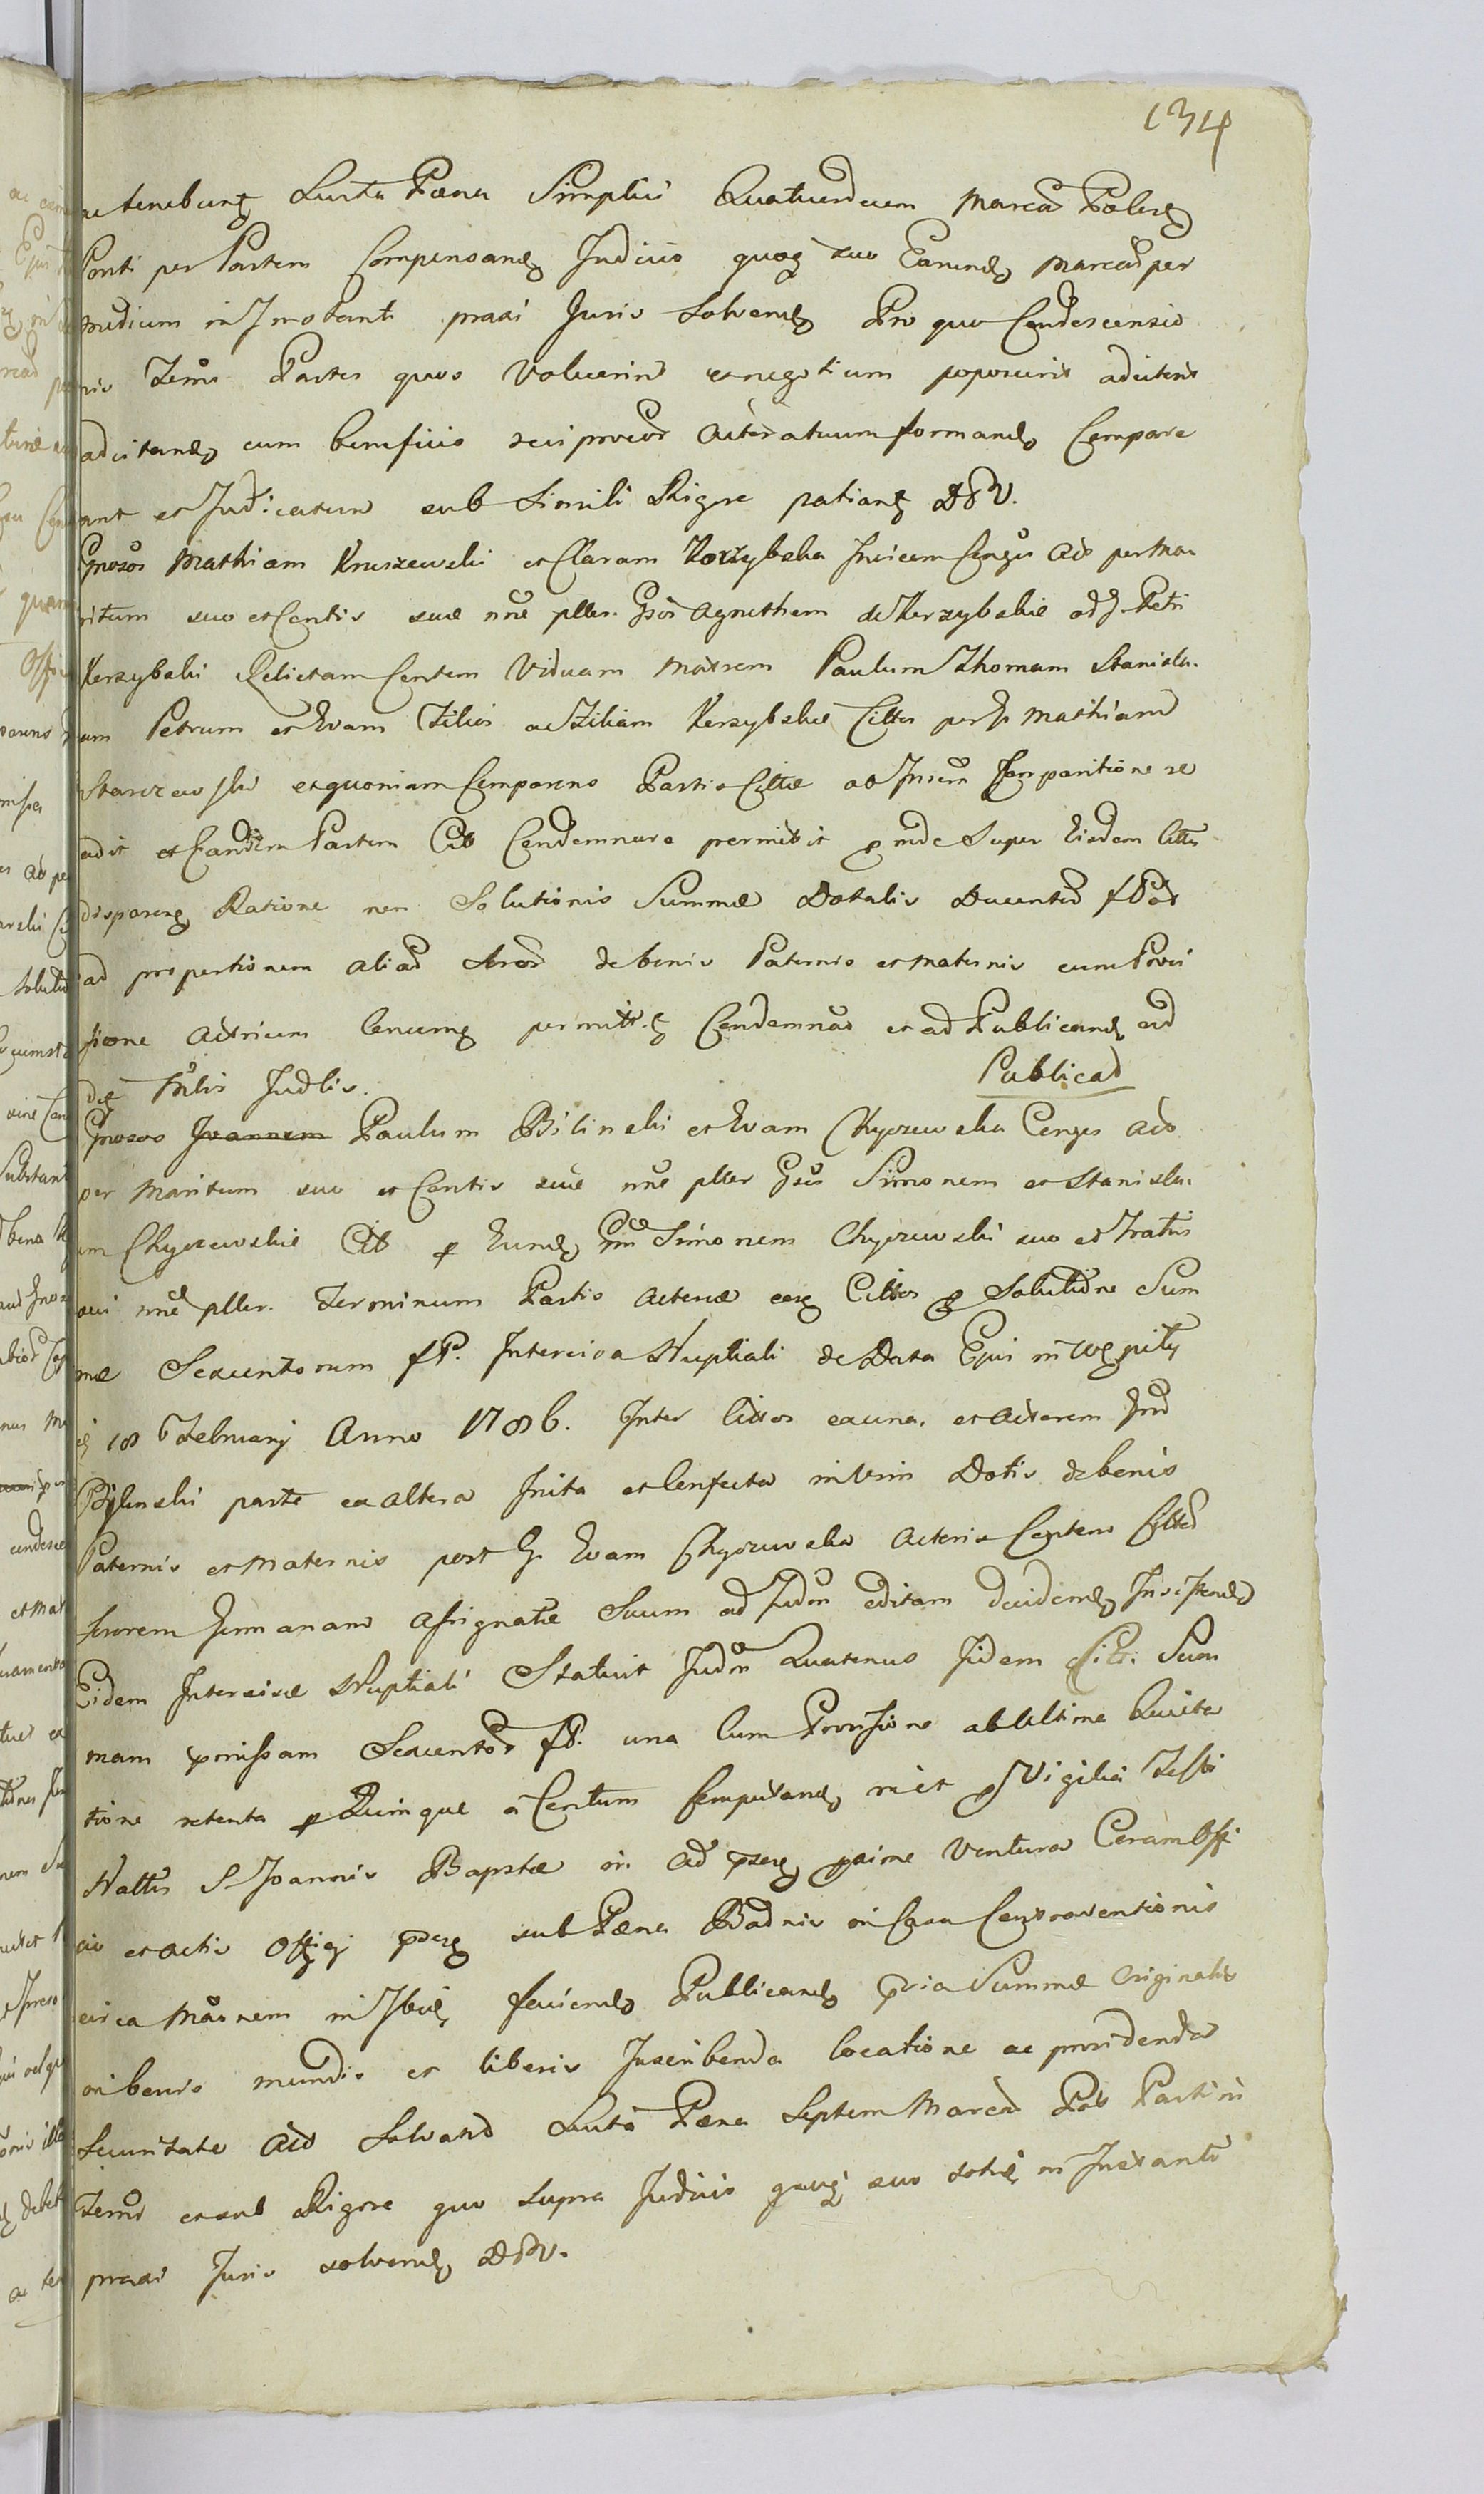 134
ac tenebunt Luita Pæna Simplici Quatuordecem Marcar Polcg
Parti per Partem Compensand Judicio quoq suo Earund Marcar per
medium in Instanti praxi Juris Solvend Pro quo Condescensio
nis Termo Partes quos Voluerint et negotium poposcerit adcitent
adcitand cum beneficio reciprocor Actoratuum formand Compare
ant et Judicatum sub Simili Rigore patiant DPV.
Gnosos Mathiam Kruszewski et Claram Korzybska Invicem Conges Act per Ma
ritum suo et Contis suæ nne pller. Gsos Agnethem de Korzybskie od G. Petri
Korzybski Relictam Contem Viduam Matrem Paulum Thomam Stanisla.
um Petrum et Evam Filios ac Filiam Korzybskie Cittos per G Mathiam
Starczewski et quoniam Comparens Partis Cittæ ab Jnscm Comparitione re
cedit et Eandem Partem Cit Condemnare permitit pinde Super Eisdem Cittis
disparens Ratione non Solutionis Summæ Dotalis Ducentor fPol
ad proportionem aliar Soror de bonis Paternis et Maternis cum Provi
sione Actricem Concerng permitt Condemnao et ad Publicand ad
dg Tnlis Judlis. Publicad
Gnosos Joannem Paulum Bilinski et Evam Chyczewska Conges Act
per Maritum suo et Contis suæ nne pller Gsos Simonem et Stanisla.
um Chyczewskie Cit p Eund Simonem Chyczewski suo et Fratris
sui nne pller. Terminum Partis Actoreæ eosq Cittos p Solutione Sum
mæ Sexcentorum fP. Intercisa Nuptiali de Data Ejus in
18 Februarij Anno 1786. Inter Cittos ex una, et Actorem Gnd
Bylinski parte ex altera Inita et Confecta in Vim Dotis de bonis
Paternis et Maternis post G. Evam Chyczewska Actoris Contem Cittor
Sororem Germanam assignatæ Suum ad Judm editam decidend Insistend
Eidem Intercisæ Nuptiali Statuit Judm Quatenus Iidem Citti Sum
mam pmissam Sexcentor fP. una Cum Provisione ab Ultima Quieta
tione retenta p Quinque a Centum Computand in et p Vigilia Festi
Nattis S. Joannis Bapstæ in Ad pserg pxime Ventura Coram Offi
cio et Actis Officij pserg sub Pæna Badnis in Casu Contraventionis
circa Maonem in Jbud faciend Publicand pvia Summæ Originalis
in bonis mundis et liberis Inscribenda locatione ac providenda
Securitate Act Solvand Luita Pæna Septem Marcar Pol Parti in
Termo et sub Rigore quo Supra Judicio quoq suo totid in Instanti
praxi Juris solvend DPV.